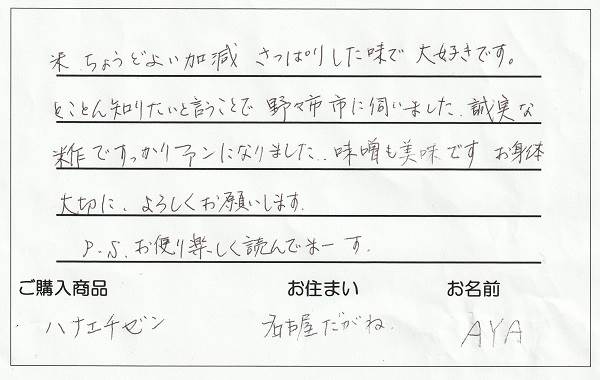 米 ちょうどよい加減 さっぱりした味で 大好きです。
とことん知りたいと言うことで 野々市市に伺いました. 誠実な
米作ですっかりファンになりました.. 味噌も美味です お身体
大切に、よろしくお願いします.
P.S. お便り楽しく読んでまーす.
ご購入商品 お住まい お名前
ハナエチゼン 名古屋だがね. AYA